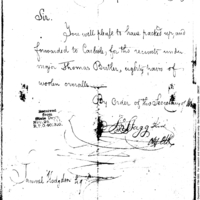 Sir.
You will please to have packed up, and
forwarded to Carlisle, for the recruits under
major Thomas Butler, eighty pairs of
woolen overalls.
By Order of the Secretary of
Samuel Hodgdon Esqr